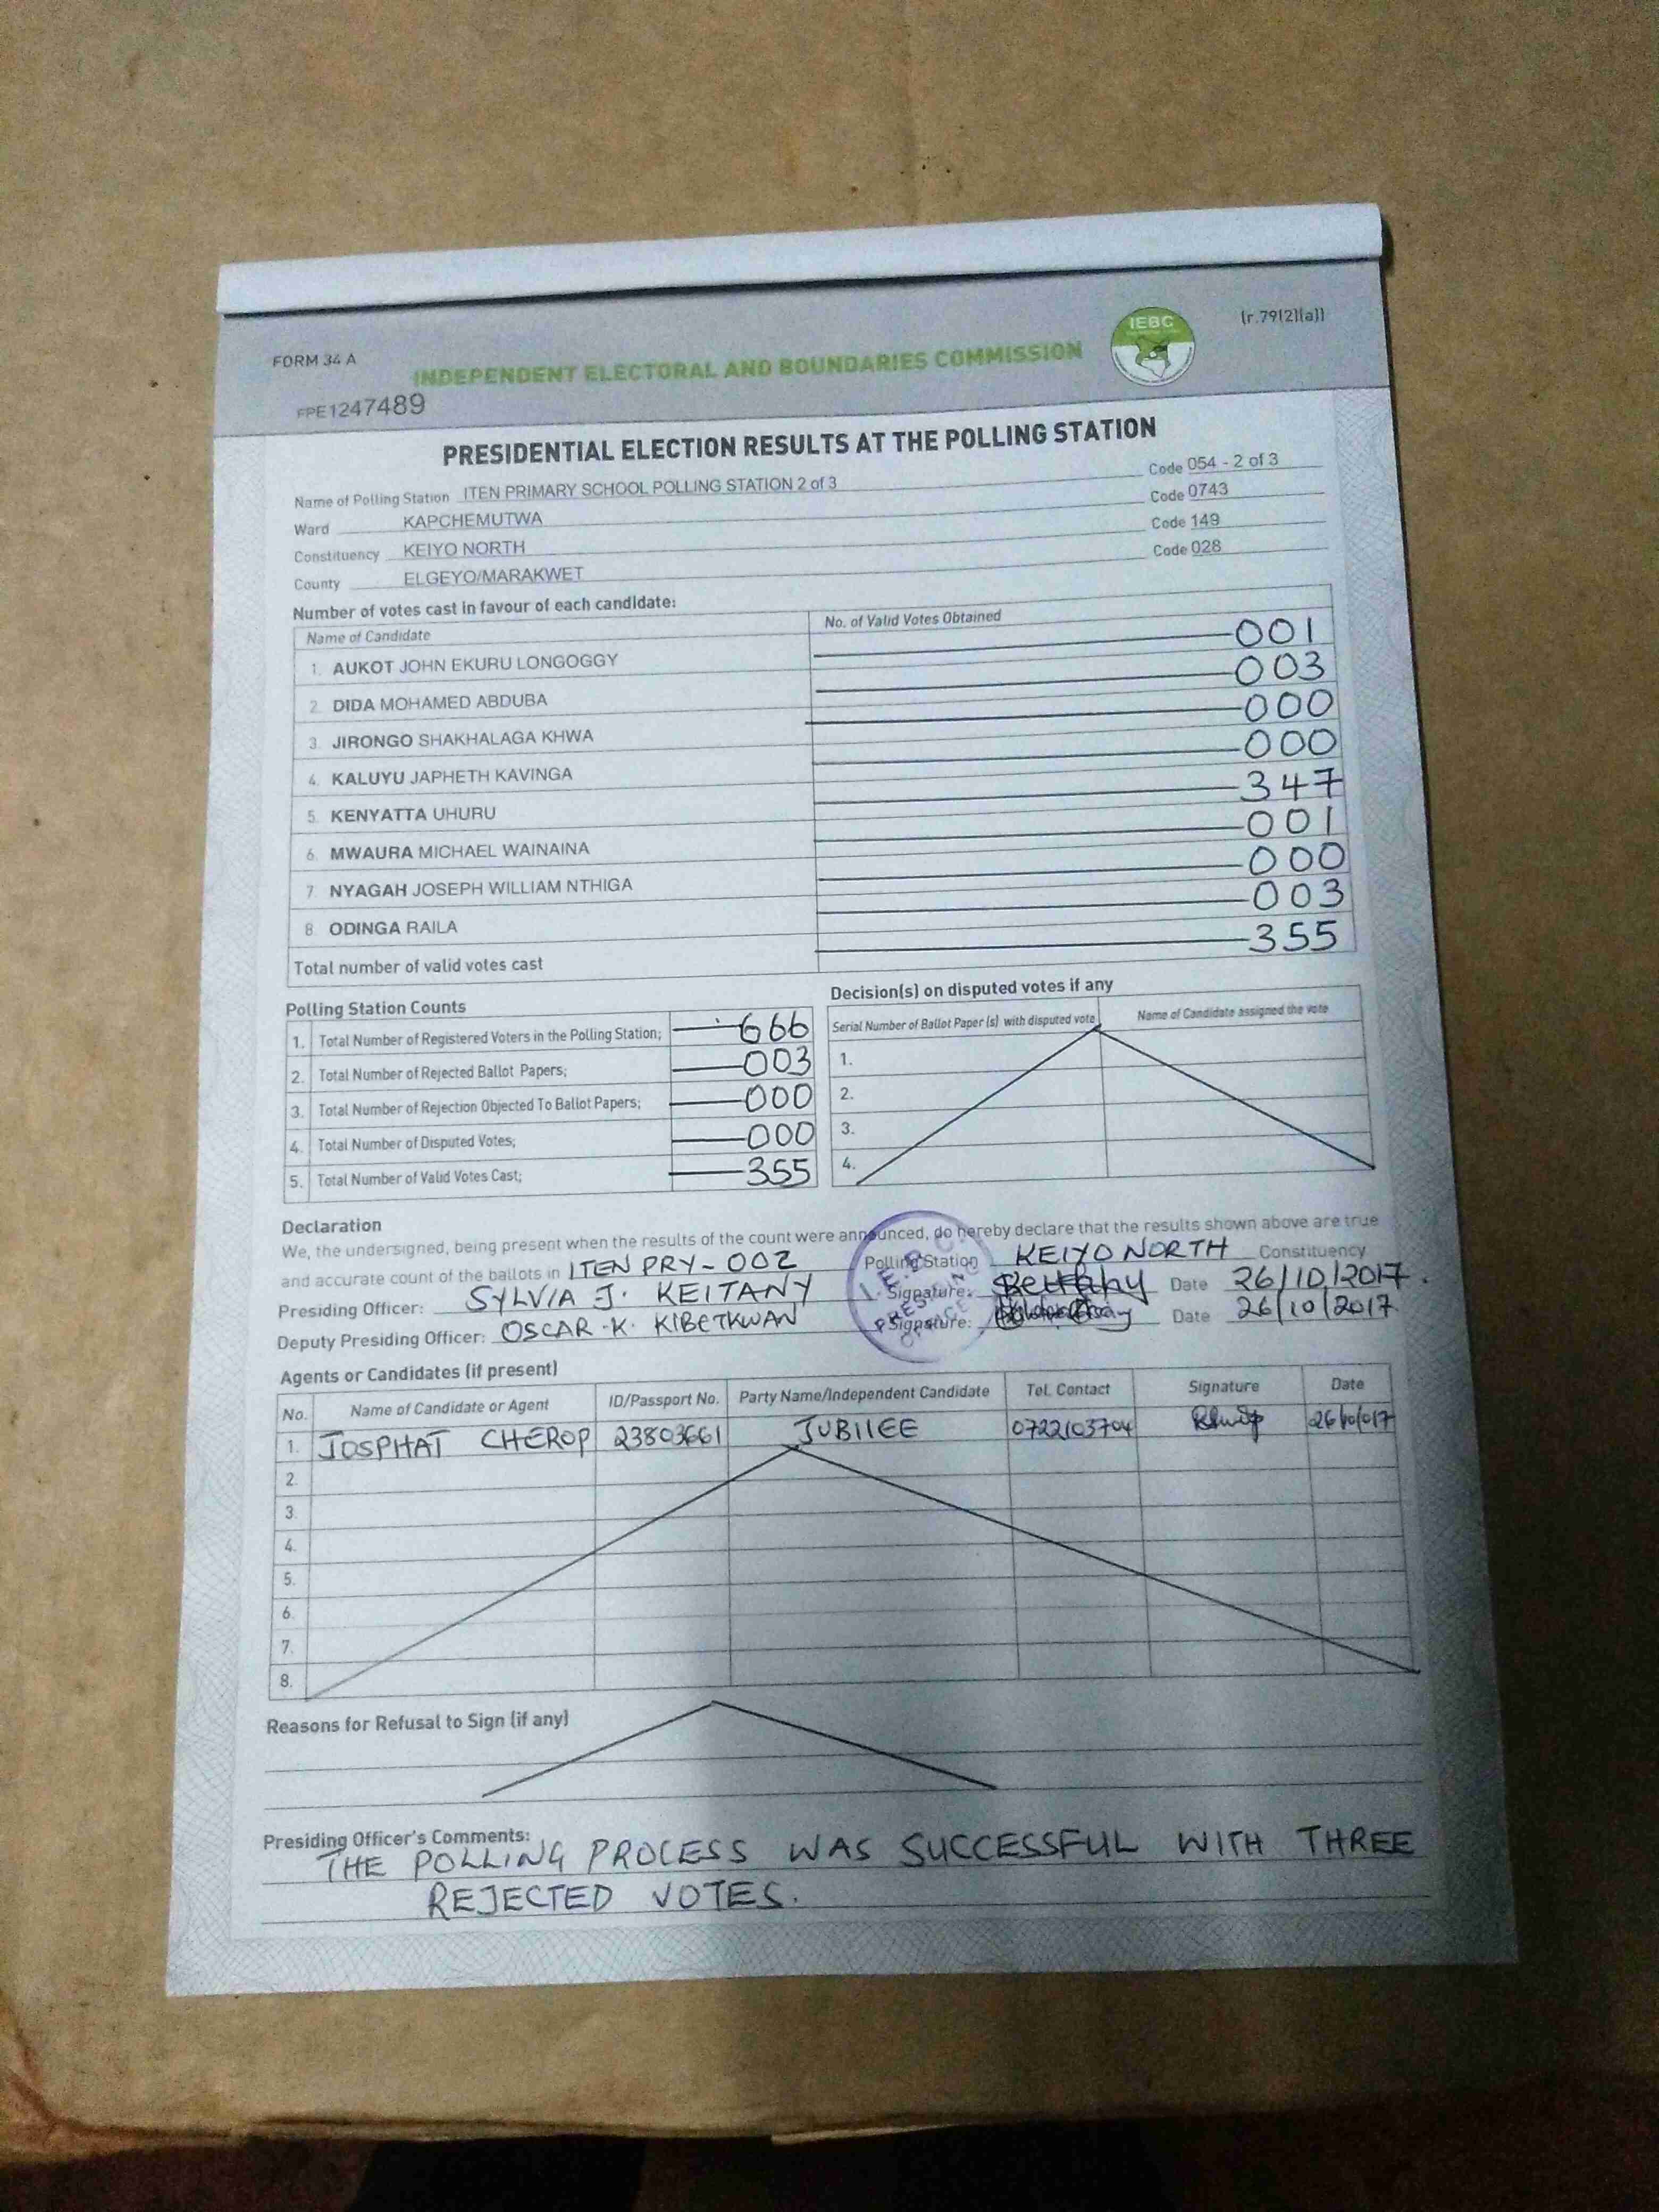 (r.79(2)(a))
IEBC
FORM 34 A
INDEPENDENT ELECTORAL AND BOUNDARIES COMMISSION
FPE1247489
PRESIDENTIAL ELECTION RESULTS AT THE POLLING STATION
Name of Polling Station ITEN PRIMARY SCHOOL POLLING STATION 2 of 3 Code 054 - 2 of 3
Ward KAPCHEMUTWA Code 0743
Constituency KEIYO NORTH Code 149
County ELGEYO/MARAKWET Code 028
Number of votes cast in favour of each candidate:
Name of Candidate No. of Valid Votes Obtained
1. AUKOT JOHN EKURU LONGOGGY 001
2. DIDA MOHAMED ABDUBA 003
3. JIRONGO SHAKHALAGA KHWA 000
4. KALUYU JAPHETH KAVINGA 000
5. KENYATTA UHURU 347
6. MWAURA MICHAEL WAINAINA 001
7. NYAGAH JOSEPH WILLIAM NTHIGA 000
8. ODINGA RAILA 003
Total number of valid votes cast 355
Polling Station Counts
1. Total Number of Registered Voters in the Polling Station; 666
2. Total Number of Rejected Ballot Papers; 003
3. Total Number of Rejection Objected To Ballot Papers; 000
4. Total Number of Disputed Votes; 000
5. Total Number of Valid Votes Cast; 355
Decision(s) on disputed votes if any
Serial Number of Ballot Paper (s) with disputed vote Name of Candidate assigned the vote
1.
2.
3.
4.
Declaration
We, the undersigned, being present when the results of the count were announced, do hereby declare that the results shown above are true
and accurate count of the ballots in ITEN PRY - 002 Polling Station KEIYO NORTH Constituency
Presiding Officer: SYLVIA J. KEITANY Signature: Date 26/10/2017.
Deputy Presiding Officer: OSCAR .K. KIBETKWAN Signature: Date 26/10/2017
I.E.B.C.
PRESIDING
OFFICER
Agents or Candidates (if present)
No. Name of Candidate or Agent ID/Passport No. Party Name/Independent Candidate Tel. Contact Signature Date
1. JOSPHAT CHEROP 23803661 JUBILEE 0722103704 26/10/017
2.
3.
4.
5.
6.
7.
8.
Reasons for Refusal to Sign (if any)
Presiding Officer's Comments:
THE POLLING PROCESS WAS SUCCESSFUL WITH THREE
REJECTED VOTES.